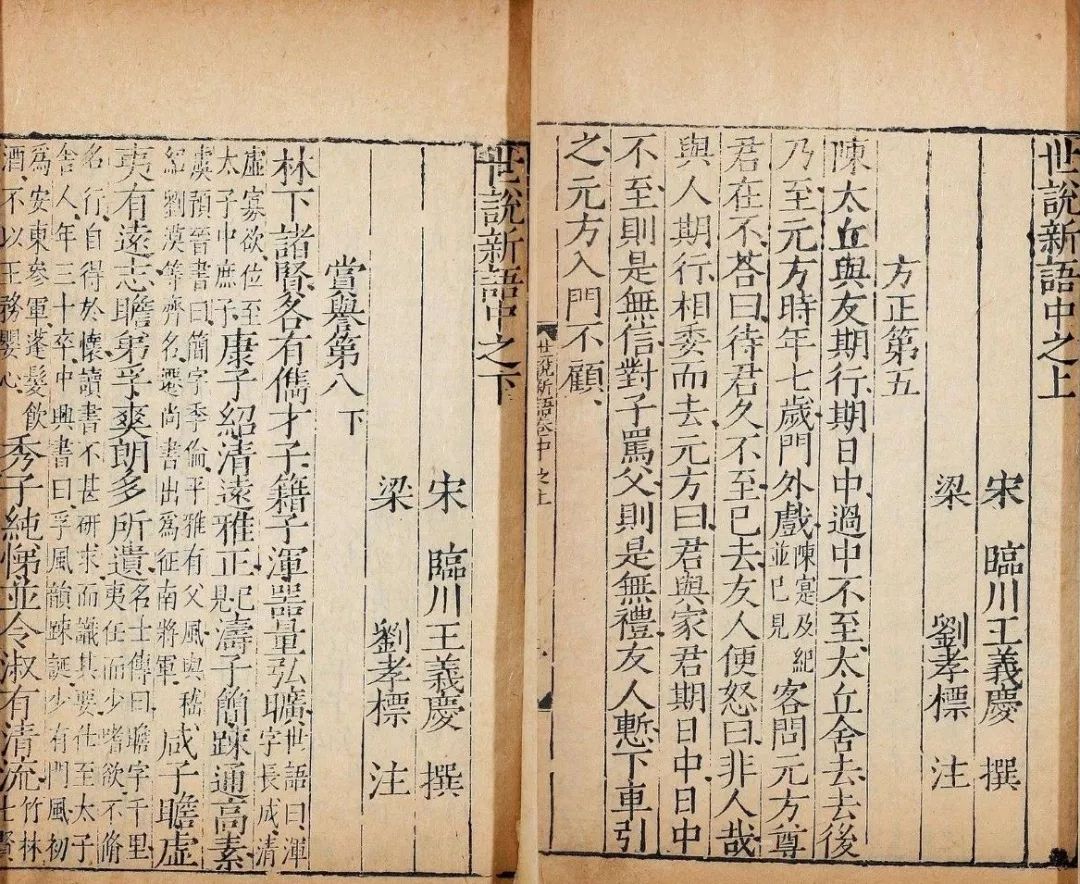 世說新語中之上
宋 臨川王義慶 撰
梁 劉孝標 注
方正第五
陳太丘與友期行期日中過中不至太丘舍去去後
乃至元方時年七歲門外戲陳寔及紀並已見客問元方尊
君在不荅曰待君久不至已去友人便怒曰非人哉
與人期行相委而去元方曰君與家君期日中日中
不至則是無信對子罵父則是無禮友人慙下車引
之元方入門不顧
世說新語卷中之上
世說新語中之下
宋 臨川王義慶 撰
梁 劉孝標 注
賞譽第八 下
林下諸賢各有儁才子籍子渾器量弘曠世語曰渾字長成清
虛寡欲位至太子中庶子康子紹清遠雅正已見濤子簡踈通高素
虞預晉書曰簡字季倫平雅有父風與嵇紹劉漠等齊名遷尚書出為征南將軍咸子瞻虛
夷有遠志瞻弟孚爽朗多所遺名士傳曰瞻字千里夷任而少嗜欲不脩
名行自得於懷讀書不甚研求而識其要仕至太子舍人年三十卒中興書曰孚風韻踈誕少有門風初
為安東參軍蓬髮飲酒不以王務嬰心秀子純悌並令淑有清流竹林七賢